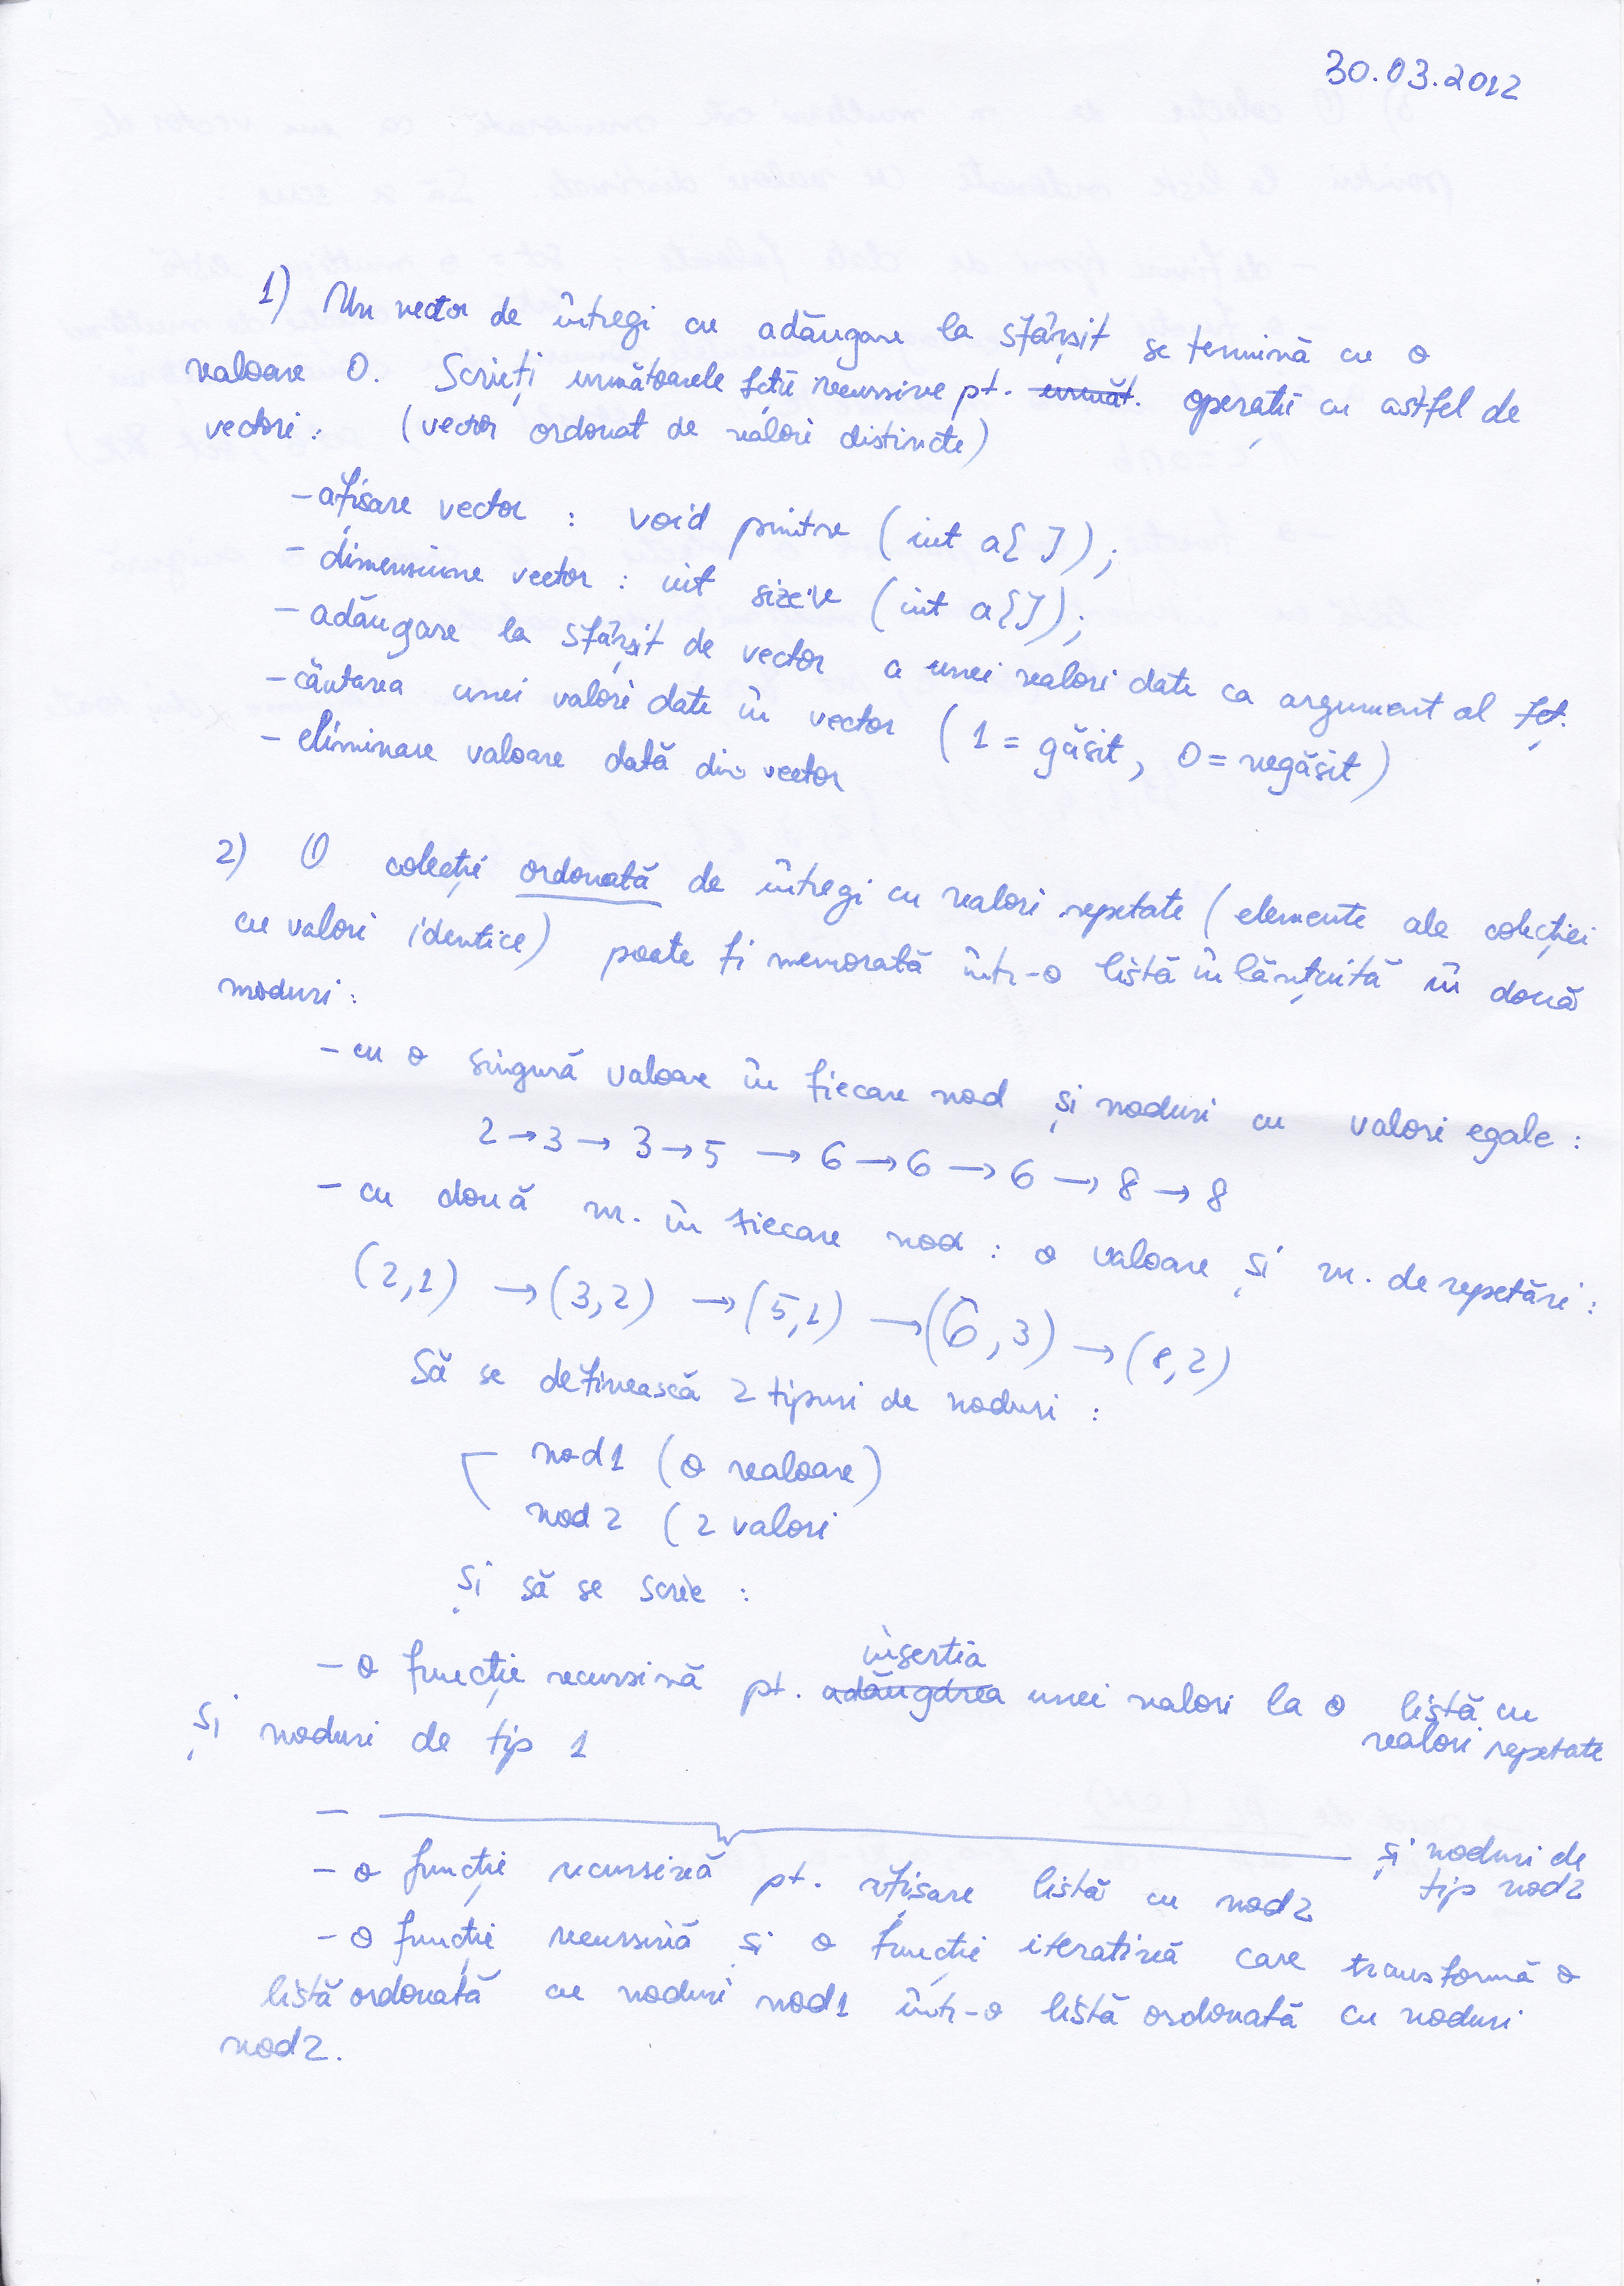 30.03.2012
1) Un vector de întregi cu adăugare la sfârșit se termină cu o
valoare 0. Scrieți următoarele fcții recursive pt. următ. operații cu astfel de
vectori: (vector ordonat de valori distincte)
- afișare vector : void printv (int a[ ]);
- dimensiune vector : int sizev (int a[]);
- adăugare la sfârșit de vector a unei valori date ca argument al fcț.
- căutarea unei valori date în vector (1 = găsit, 0 = negăsit)
- eliminare valoare dată din vector
2) O colecție ordonată de întregi cu valori repetate (elemente ale colecției
cu valori identice) poate fi memorată într-o listă înlănțuită în două
moduri:
- cu o singură valoare în fiecare nod și noduri cu valori egale :
2 → 3 → 3 → 5 → 6 → 6 → 6 → 8 → 8
- cu două nr. în fiecare nod : o valoare și nr. de repetări :
(2,1) → (3,2) → (5,1) → (6,3) → (8,2)
Să se definească 2 tipuri de noduri :
nod1 (o valoare)
nod2 (2 valori
și să se scrie :
- o funcție recursivă pt. adăugarea inserția unei valori la o listă cu
valori repetate
și noduri de tip 1
- și noduri de
tip nod2
- o funcție recursivă pt. afișare listă cu nod2
- o funcție recursivă și o funcție iterativă care transformă o
listă ordonată cu noduri nod1 într-o listă ordonată cu noduri
nod2.